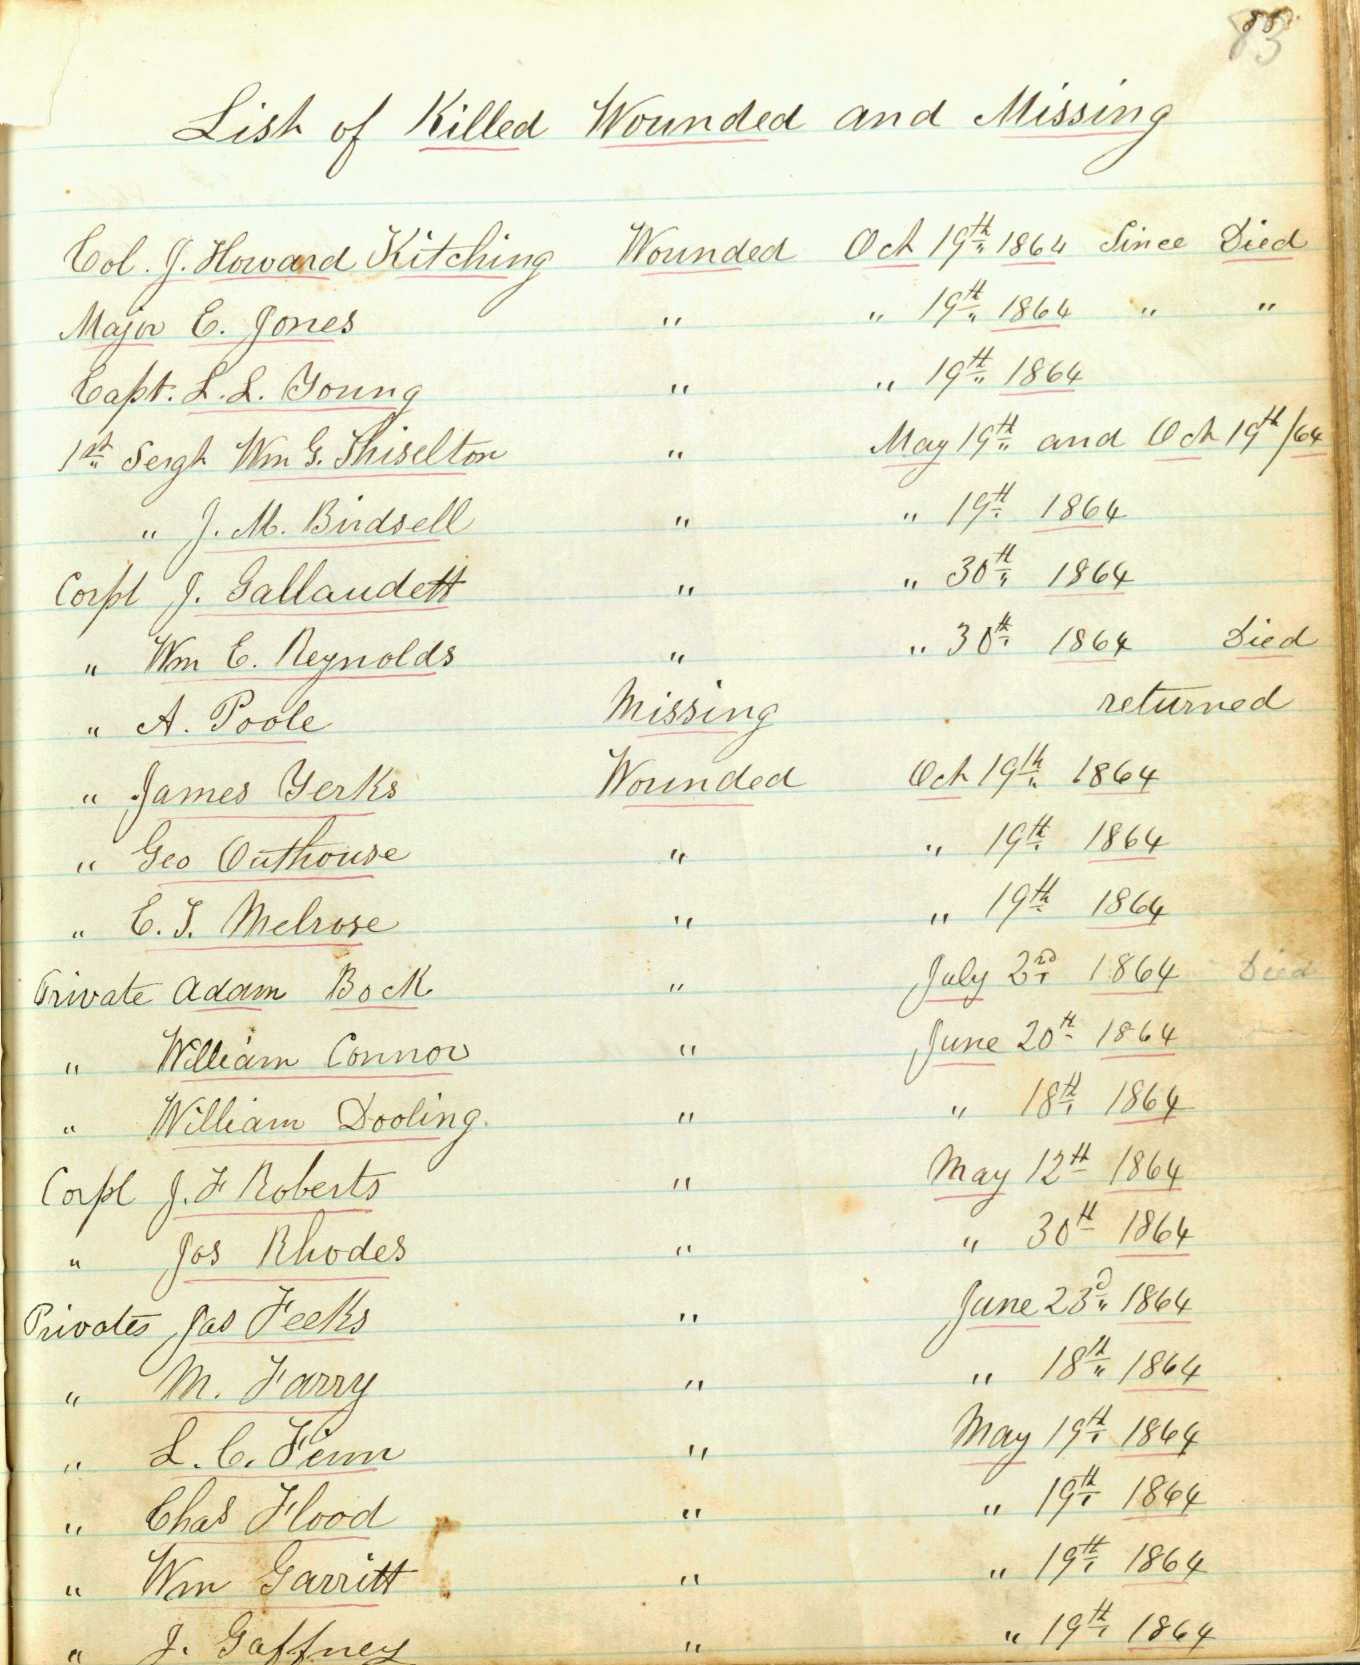 83
List of Killed Wounded and Missing
Col. J. Howard Kitching Wounded Oct 19th 1864 Since Died
Major E. Jones " " 19th 1864 " "
Capt. L. L. Young " " 19th 1864
1st Sergt Wm G. Thiselton " May 19th and Oct 19th/64
" J. M. Birdsell " " 19th 1864
Corpl J. Gallaudett " " 30th 1864
" Wm E. Reynolds " " 30th 1864 Died
" A. Poole Missing returned
" James Yerks Wounded Oct 19th 1864
" Geo Outhouse " " 19th 1864
" E. T. Melrose " " 19th 1864
Private Adam Bock " July 2nd 1864 Died
" William Connor " June 20th 1864
" William Dooling " " 18th 1864
Corpl J. F Roberts " May 12th 1864
" Jos Rhodes " " 30th 1864
Privates Jas Feeks " June 23d 1864
" M. Farry " " 18th 1864
" L. C. Finn " May 19th 1864
" Chas Flood " " 19th 1864
" Wm Garritt " " 19th 1864
" J. Gaffney " " 19th 1864